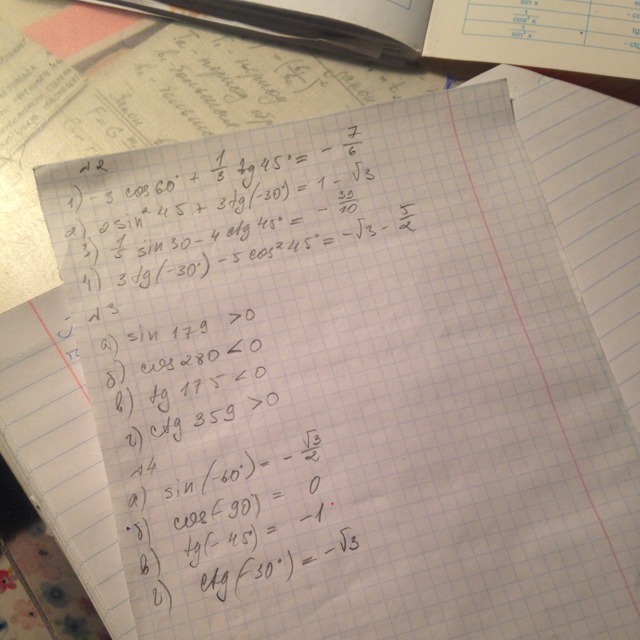 sin x
cos² x
sin² x
tg
√2
1) -3 cos60° + 1/3 tg45° = -7/6
2) sin² 45 + 3tg(-30) = 1 - √3
3) 1/5 sin30 - 4 ctg 45° = -39/10
4) 3 tg(-30) - 5 cos² 45° = -√3 - 5/2
√3
а) sin 179 > 0
б) cos 280 < 0
в) tg 175 < 0
г) ctg 359 > 0
√4
а) sin(-60°) = -√3/2
б) cos(-90°) = 0
в) tg(-45) = -1
ctg(-30°) = -√3